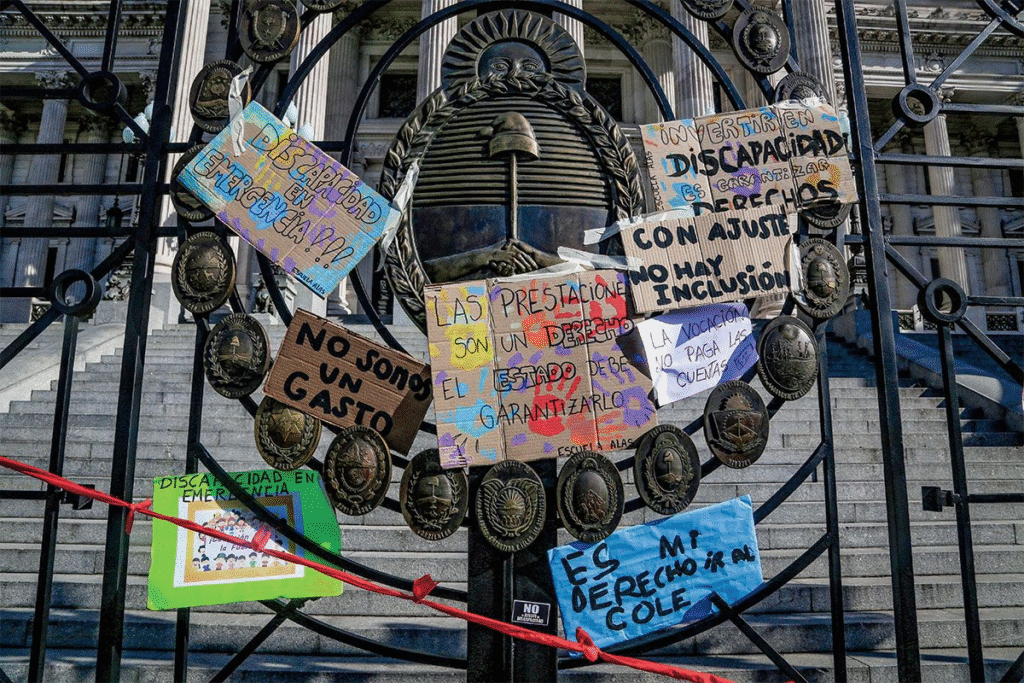 DISCAPACIDAD
EN
EMERGENCIA!!!
ESCUELA ALAS
INVERTIR EN
DISCAPACIDAD
ES GARANTIZAR
DERECHOS
ESCUELA
ALAS
CON AJUSTE
NO HAY
INCLUSIÓN
LAS PRESTACIONE
SON UN DERECHO
EL ESTADO DEBE
GARANTIZARLO
ESCUELA ALAS
LA VOCACIÓN
NO PAGA LAS
CUENTAS
NO SOMOS
UN
GASTO
DISCAPACIDAD EN
EMERGENCIA
la Fuer
ES MI
DERECHO IR AL
COLE
NO